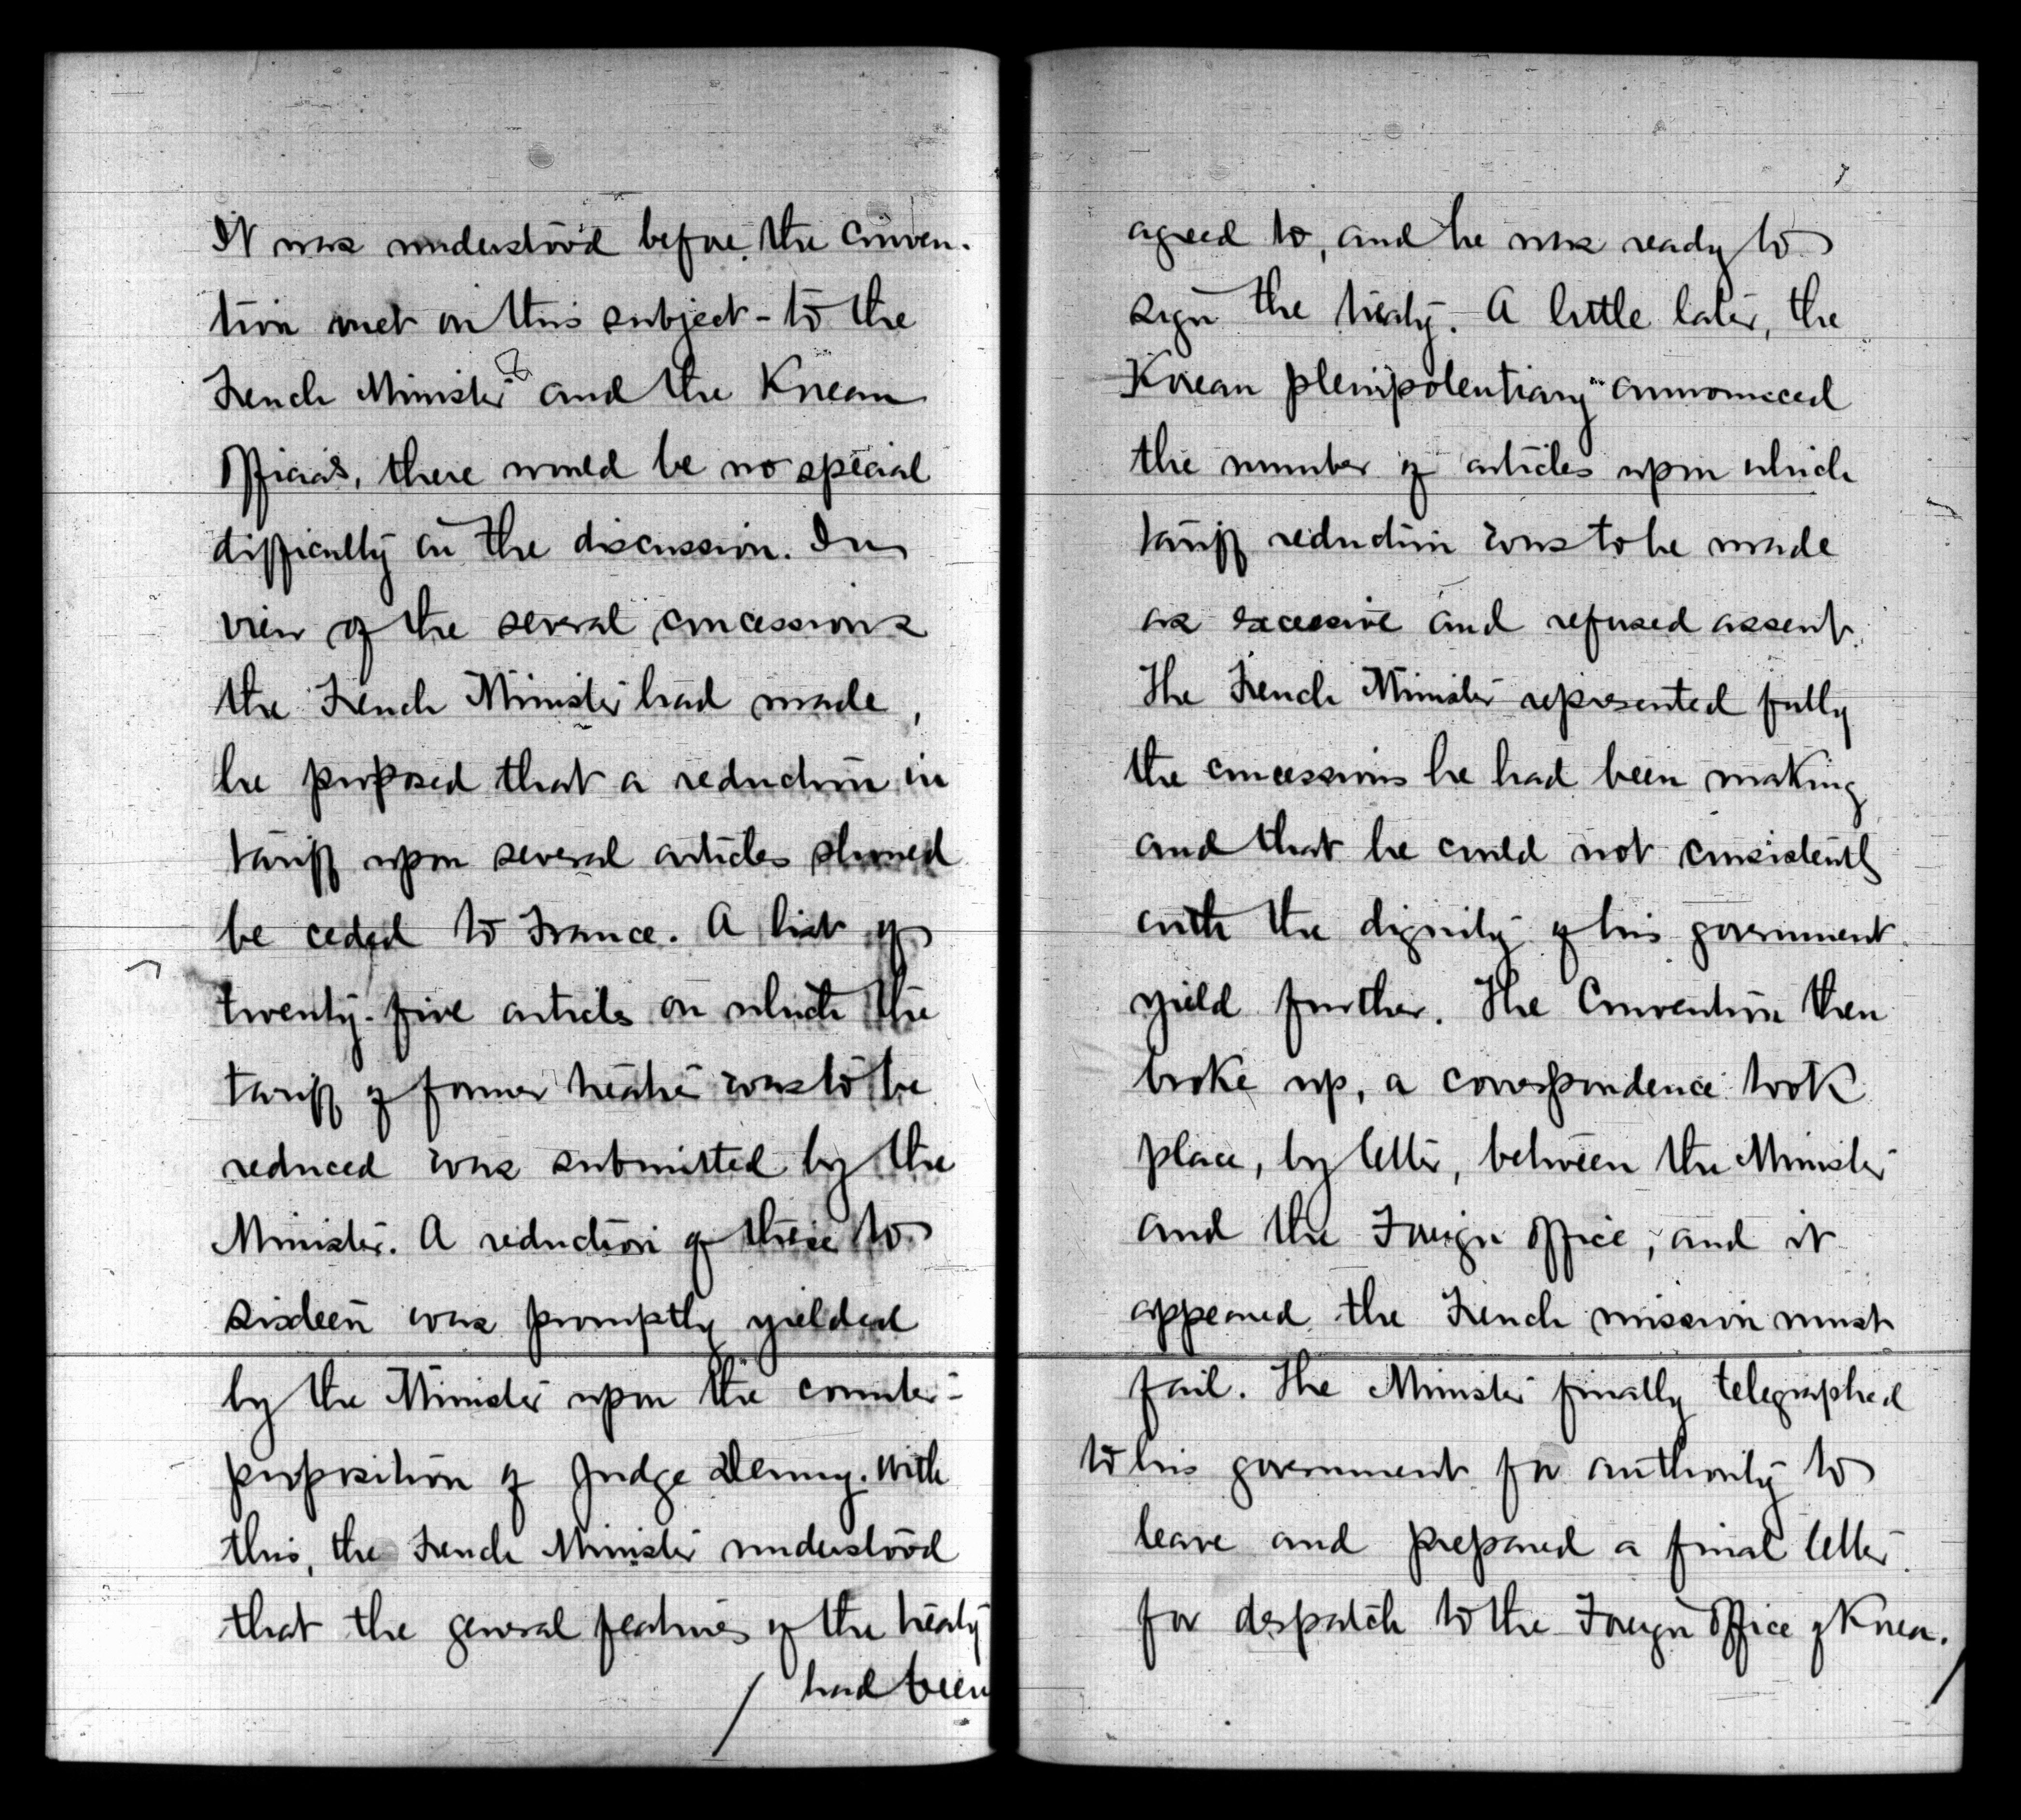 It was understood before the conven-
tion met on this subject - to the
French Minister and the Korean
officials, there would be no special
difficulty in the discussion. In
view of the several concessions
the French Minister had made,
he proposed that a reduction in
tariff upon several articles should
be ceded to France. A list of
twenty-five articles on which the
tariff of former treaties was to be
reduced was submitted by the
Minister. A reduction of these to
sixteen was promptly yielded
by the Minister upon the counter-
proposition of Judge Denny. With
this, the French Minister understood
that the general features of the treaty
had been
7
agreed to, and he was ready to
sign the treaty. A little later, the
Korean plenipotentiary announced
the number of articles upon which
tariff reduction was to be made
as excessive and refused assent.
The French Minister represented fully
the concessions he had been making
and that he could not consistently
with the dignity of his government
yield further. The Convention then
broke up, a correspondence took
place, by letter, between the Minister
and the Foreign office, and it
appeared the French mission must
fail. The Minister finally telegraphed
to his government for authority to
leave and prepared a final letter
for despatch to the Foreign office of Korea.